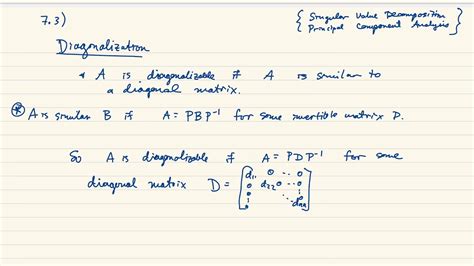 7.3)
{ Singular Value Decomposition
{ Principal Component Analysis
Diagonalization
* A is diagonalizable if A is similar to
a diagonal matrix.
* A is similar B if A = PBP⁻¹ for some invertible matrix P.
So A is diagonalizable if A = PDP⁻¹ for some
diagonal matrix D = [ d₁₁ 0 ... 0
0 d₂₂ ... 0
0 ... dₙₙ ]